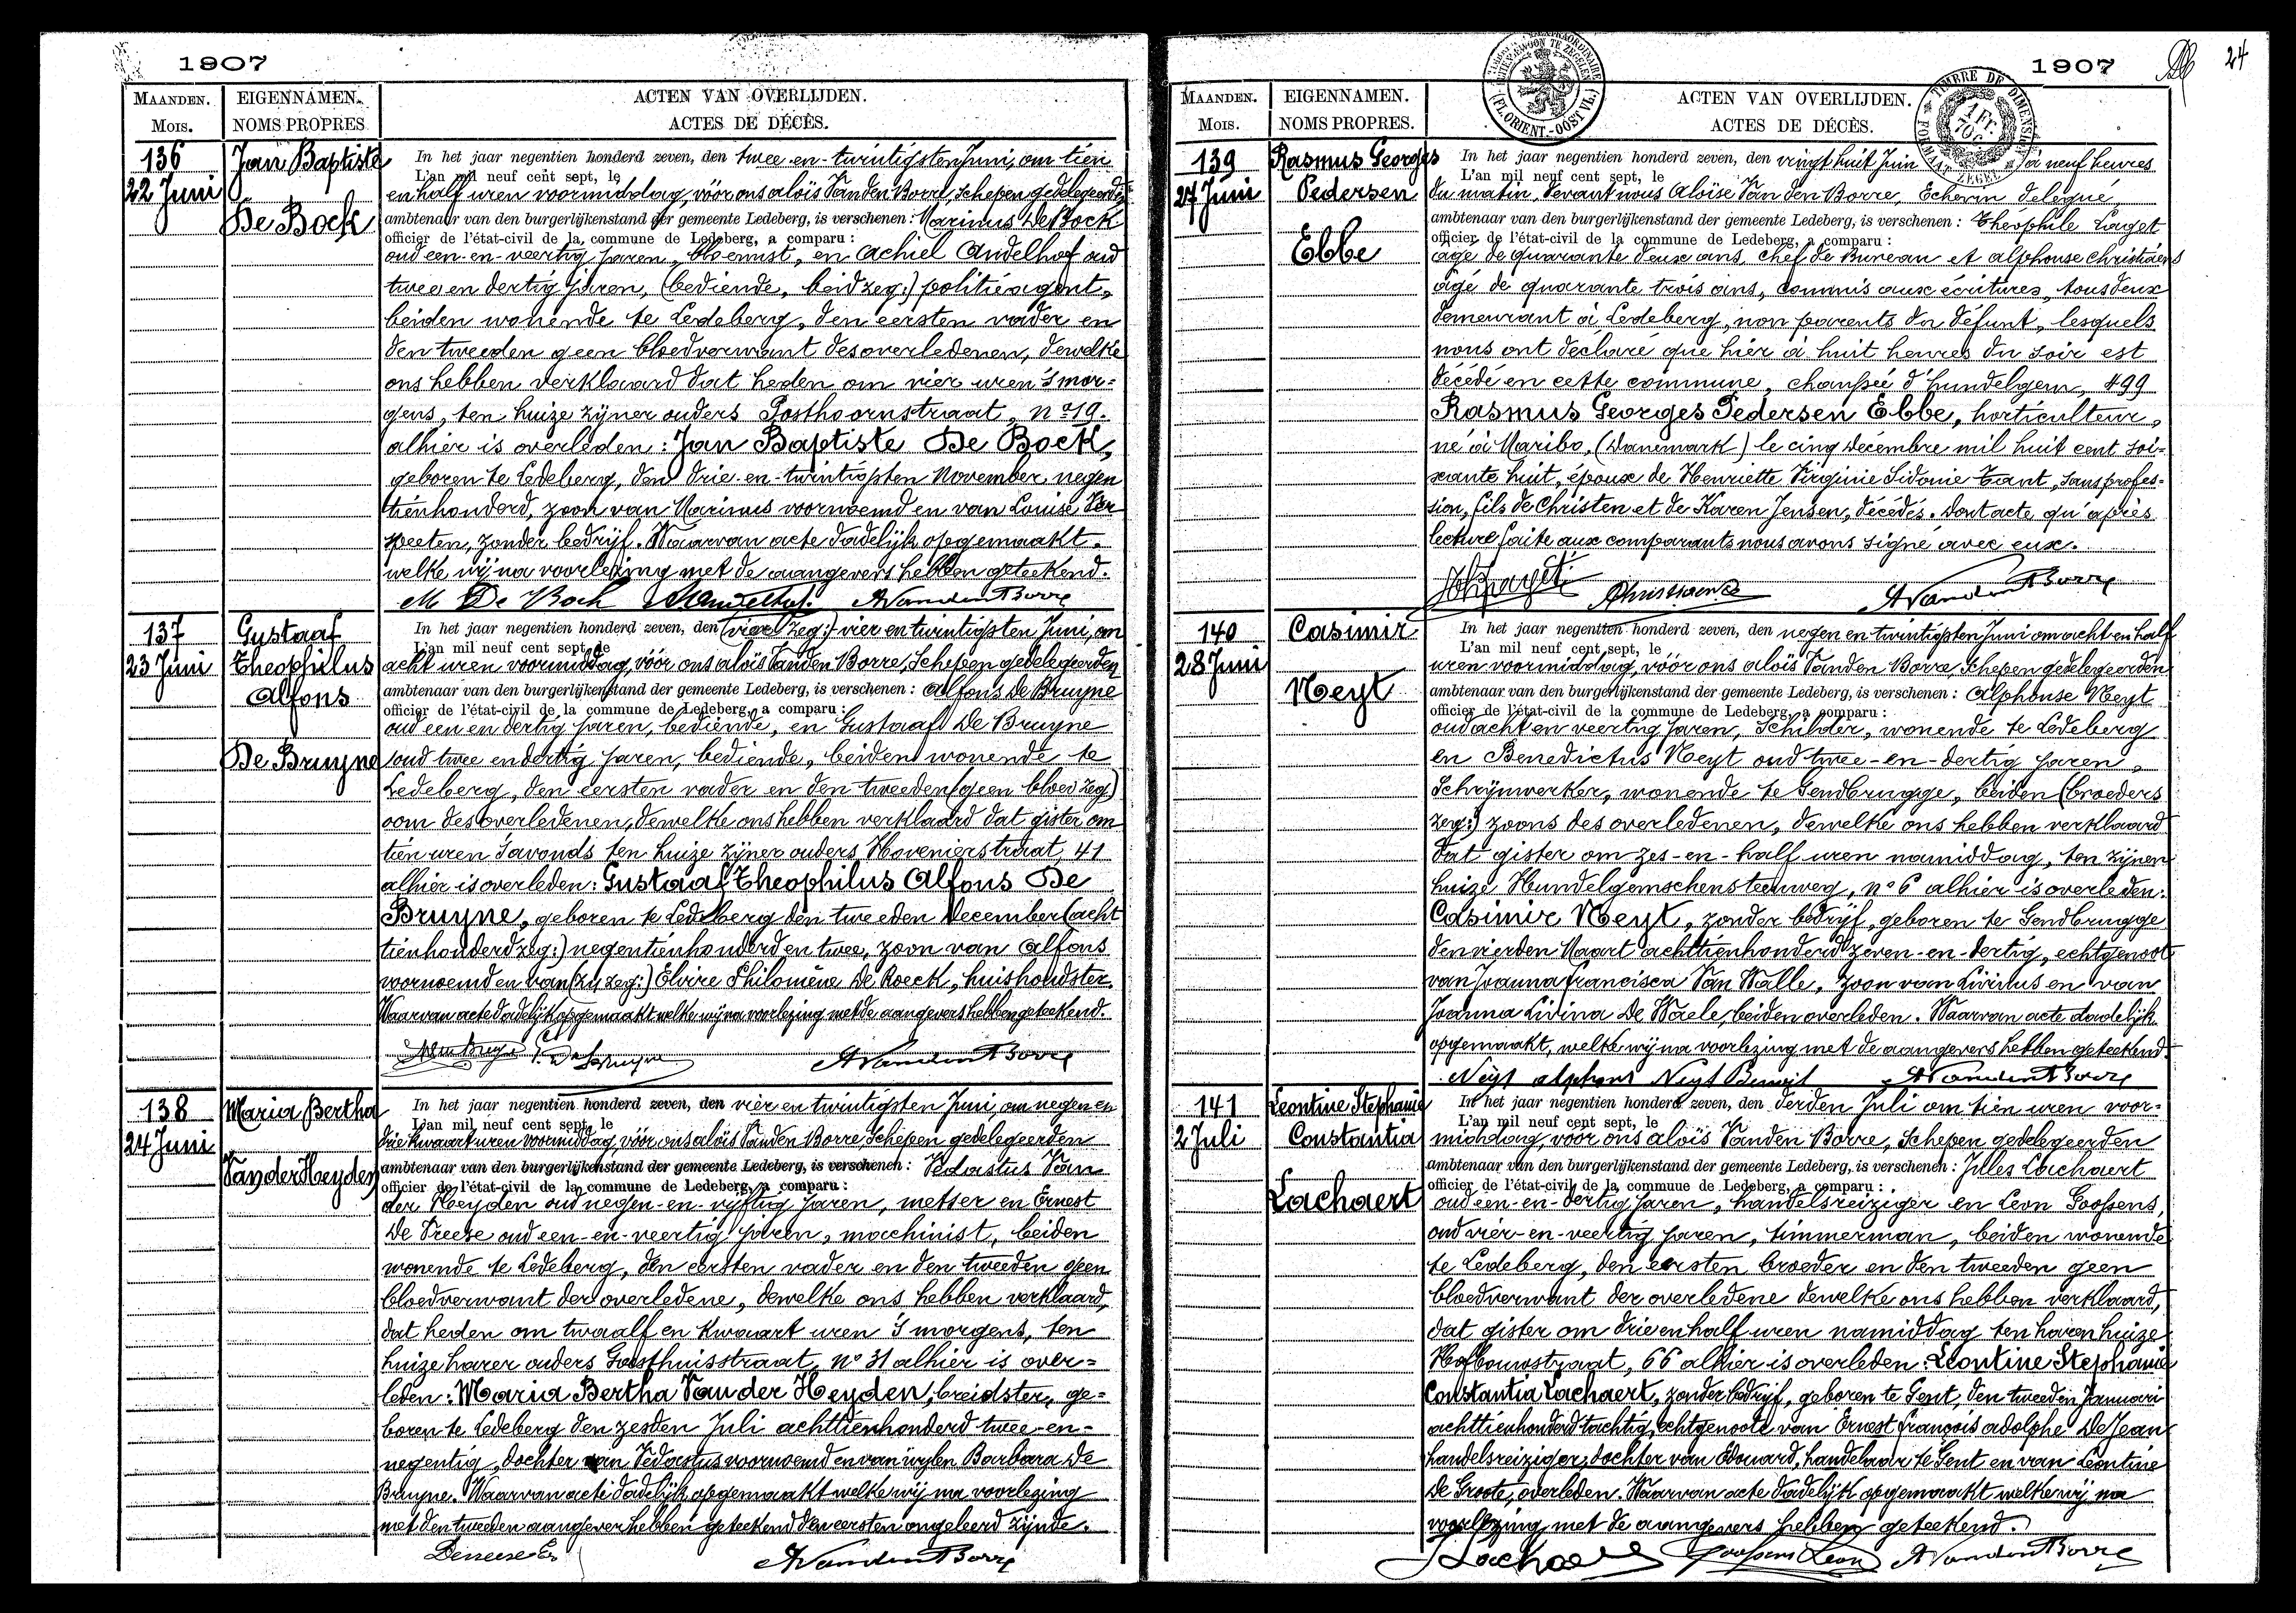 1907
MAANDEN. EIGENNAMEN. ACTEN VAN OVERLIJDEN.
MOIS. NOMS PROPRES ACTES DE DÉCÈS.
136 Jan Baptiste
22 Juni
De Bock
In het jaar negentien honderd zeven, den twee-en-twintigsten Juni, om tien
L'an mil neuf cent sept, le
en half uren voormiddag, vóór ons Aloïs Van den Borre, Schepen gedelegeerden
ambtenaar van den burgerlijkenstand der gemeente Ledeberg, is verschenen: Marinus De Bock
officier de l'état-civil de la commune de Ledeberg, a comparu:
oud een-en-veertig jaren, bloemist, en Achiel Andelhof oud
twee en dertig jaren, (bediende, beid zeg:) politieagent,
beiden wonende te Ledeberg, den eersten vader en
den tweeden geen bloedverwant des overledenen, dewelke
ons hebben verklaard dat heden om vier uren 's mor=
gens, ten huize zijner ouders Posthoornstraat, no 19.
alhier is overleden: Jan Baptiste De Bock,
geboren te Ledeberg, den drie-en-twintigsten November negen
tienhonderd, zoon van Marinus voornoemd en van Louise Ver
speeten, zonder bedrijf. Waarvan acte dadelijk opgemaakt.
welke wij na voorlezing met de aangevers hebben geteekend.
M De Bock AVandenBorre
137 Gustaaf
23 Juni Theophilus
Alfons
De Bruyne
In het jaar negentien honderd zeven, den (vier zeg:) vier en twintigsten Juni, om
L'an mil neuf cent sept, le
acht uren voormiddag, vóór ons Aloïs Van den Borre, Schepen gedelegeerden
ambtenaar van den burgerlijkenstand der gemeente Ledeberg, is verschenen: Alfons De Bruyne
officier de l'état-civil de la commune de Ledeberg, a comparu:
oud een en dertig jaren, bediende, en Gustaaf De Bruyne
oud twee en dertig jaren, bediende, beiden wonende te
Ledeberg, den eersten vader en den tweeden (geen bloed zeg)
oom des overledenen, dewelke ons hebben verklaard dat gister om
tien uren 's avonds ten huize zijner ouders Hovenierstraat, 41
alhier is overleden: Gustaaf Theophilus Alfons De
Bruyne, geboren te Ledeberg den tweeden December (acht
tienhonderd zeg:) negentienhonderd en twee, zoon van Alfons
voornoemd en van (zij zeg:) Elvire Philomène De Roeck, huishoudster.
Waarvan acte dadelijk opgemaakt welke wij na voorlezing met de aangevers hebben geteekend.
AVandenBorre
138 Maria Bertha
24 Juni
Van der Heyden
In het jaar negentien honderd zeven, den vier en twintigsten Juni, om negen en
L'an mil neuf cent sept, le
drie kwaart uren voormiddag, vóór ons Aloïs Van den Borre Schepen gedelegeerden
ambtenaar van den burgerlijkenstand der gemeente Ledeberg, is verschenen: Vedastus Van
officier de l'état-civil de la commune de Ledeberg, a comparu:
der Heyden oud negen-en-vijftig jaren, metser en Ernest
De Neeze oud een-en-veertig jaren, machinist, beiden
wonende te Ledeberg, den eersten vader en den tweeden geen
bloedverwant der overledene, dewelke ons hebben verklaard,
dat heden om twaalf en kwaart uren 's morgens, ten
huize harer ouders Godshuisstraat, no 31 alhier is over=
leden: Maria Bertha Van der Heyden, breidster, ge=
boren te Ledeberg den zesden Juli achttienhonderd twee-en-
negentig, dochter van Vedastus voornoemd en van wijlen Barbara De
Bruyne. Waarvan acte dadelijk opgemaakt welke wij na voorlezing
met den tweeden aangever hebben geteekend den eersten ongeleerd zijnde.
AVandenBorre
1907
24
MAANDEN. EIGENNAMEN. ACTEN VAN OVERLIJDEN.
MOIS. NOMS PROPRES. ACTES DE DÉCÈS.
(FL. ORIENT.-OOST VL.)
TIMBRE DE DIMENSION
FORMAAT ZEGEL
139 Rasmus Georges
27 Juni Pedersen
Ebbe
In het jaar negentien honderd zeven, den vingt huit Juin à neuf heures
L'an mil neuf cent sept, le
du matin, devant nous Aloïse Van den Borre, Echevin délégué,
ambtenaar van den burgerlijkenstand der gemeente Ledeberg, is verschenen: Théophile Laget
officier de l'état-civil de la commune de Ledeberg, a comparu:
âgé de quarante deux ans, chef de Bureau et Alphonse Christiaens
âgé de quarante trois ans, commis aux écritures, tous deux
demeurant à Ledeberg, non parents du défunt, lesquels
nous ont déclaré que hier à huit heures du soir est
décédé en cette commune, chaussée d'Hundelgem, 499
Rasmus Georges Pedersen Ebbe, horticulteur,
né à Maribo, (Danemark) le cinq Décembre mil huit cent soi=
xante huit, époux de Henriette Virginie Sidonie Tant, sans profes=
sion, fils de Christen et de Karen Jensen, décédés. Dont acte qu'après
lecture faite aux comparants nous avons signé avec eux.
AVandenBorre
140 Casimir
28 Juni
Neyt
In het jaar negentien honderd zeven, den negen en twintigsten Juni om acht en half
L'an mil neuf cent sept, le
uren voormiddag, vóór ons Aloïs Van den Borre, Schepen gedelegeerden
ambtenaar van den burgerlijkenstand der gemeente Ledeberg, is verschenen: Alphonse Neyt
officier de l'état-civil de la commune de Ledeberg, a comparu:
oud acht en veertig jaren, Schilder, wonende te Ledeberg
en Benedictus Neyt oud twee-en-dertig jaren,
Schrijnwerker, wonende te Gendbrugge, beiden (broeders
zeg:) zoons des overledenen, dewelke ons hebben verklaard
dat gister om zes-en-half uren namiddag, ten zijnen
huize Hundelgemschensteenweg, no 6 alhier is overleden:
Casimir Neyt, zonder bedrijf, geboren te Gendbrugge
den vierden Maart achttienhonderd zeven-en-dertig, echtgenoot
van Joanna Francisca Van Walle, zoon van Livinus en van
Joanna Livina De Waele, beiden overleden. Waarvan acte dadelijk
opgemaakt, welke wij na voorlezing met de aangevers hebben geteekend.
Neyt alphons Neyt Benoit AVandenBorre
141 Leontine Stephanie
2 Juli Constantia
Lachaert
In het jaar negentien honderd zeven, den derden Juli om tien uren voor=
L'an mil neuf cent sept, le
middag, voor ons Aloïs Van den Borre, Schepen gedelegeerden
ambtenaar van den burgerlijkenstand der gemeente Ledeberg, is verschenen: Jilles Lachaert
officier de l'état-civil de la commune de Ledeberg, a comparu:
oud een-en-dertig jaren, handelsreiziger en Leon Goossens,
oud vier-en-veertig jaren, timmerman, beiden wonende
te Ledeberg, den eersten broeder en den tweeden geen
bloedverwant der overledene dewelke ons hebben verklaard,
dat gister om drie en half uren namiddag ten haren huize
Hofbouwstraat, 66 alhier is overleden: Leontine Stephanie
Constantia Lachaert, zonder bedrijf, geboren te Gent, den tweeden Januari
achttienhonderd tachtig, echtgenoote van Ernest François Adolphe De Jean
handelsreiziger, dochter van Edouard, handelaar te Gent en van Léontine
De Groote, overleden. Waarvan acte dadelijk opgemaakt welke wij na
voorlezing met de aangevers hebben geteekend.
JLachaert Goossens Leon AVandenBorre